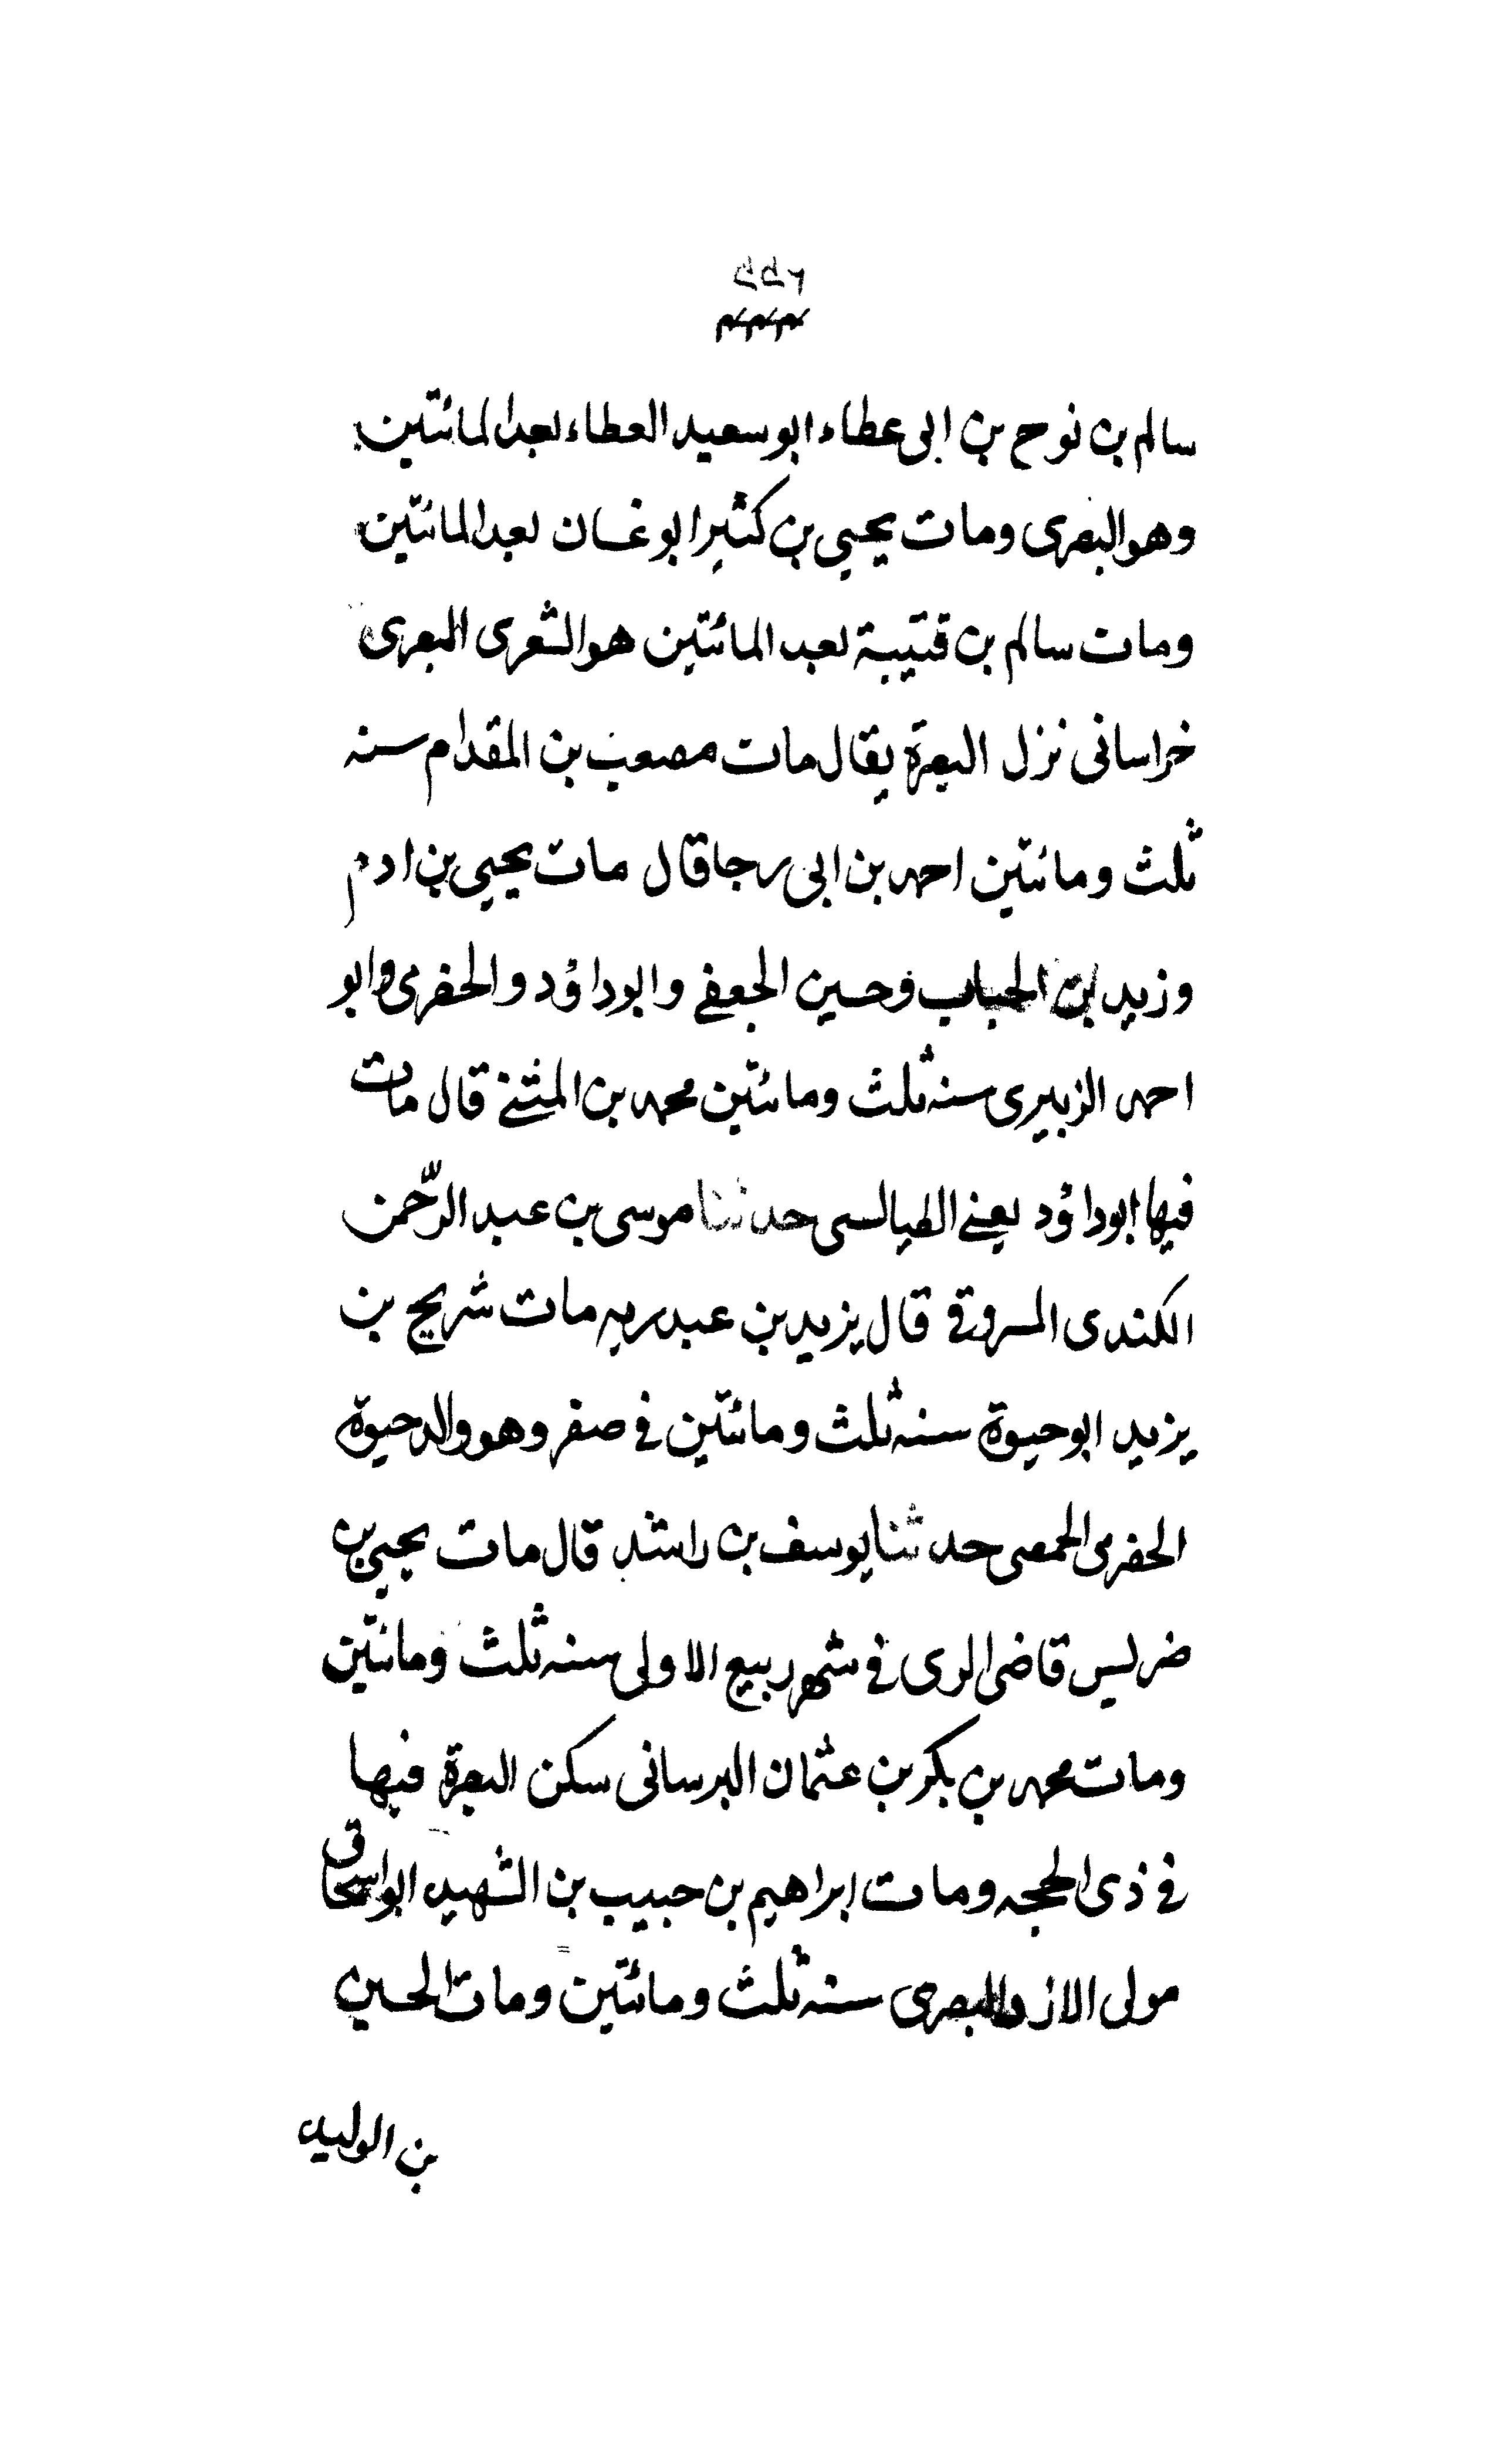 سالم بن نوح بن ابى عطاء ابو سعيد العطاء بعد المائتين
وهو البصرى ومات يحيى بن كثير ابو غسان بعد المائتين
ومات سالم بن قتيبة بعد المائتين هو الشعرى البصرى
خراسانى نزل البصرة يقال مات مصعب بن المقدام سنه
ثلث ومائتين احمد بن ابى رجا قال مات يحيى بن ادم
وزيد بن الحباب وحسين الجعفے وابوداؤد والحفرى وابو
احمد الزبيرى سنه ثلث ومائتين محمد بن المثنے قال مات
فيها ابوداؤد يعنے الطيالسى حدثنا موسى بن عبد الرّحمن
الكندى المسروقے قال يزيد بن عبدربه مات شريح بن
يزيد ابوحيوة سنه ثلث ومائتين فى صفر وهو والد حيوة
الحفرى الحمصى حدثنا يوسف بن راشد قال مات يحيى بن
ضريس قاضى الرى فى شهر ربيع الاولى سنه ثلث ومائتين
ومات محمد بن بكر بن عثمان البرسانى سكن البصرة فيها
فى ذى الحجه ومات ابراهيم بن حبيب بن الشهيد ابواسحاق
مولى الازد البصرى سنه ثلث ومائتين ومات الحسين
بن الوليد